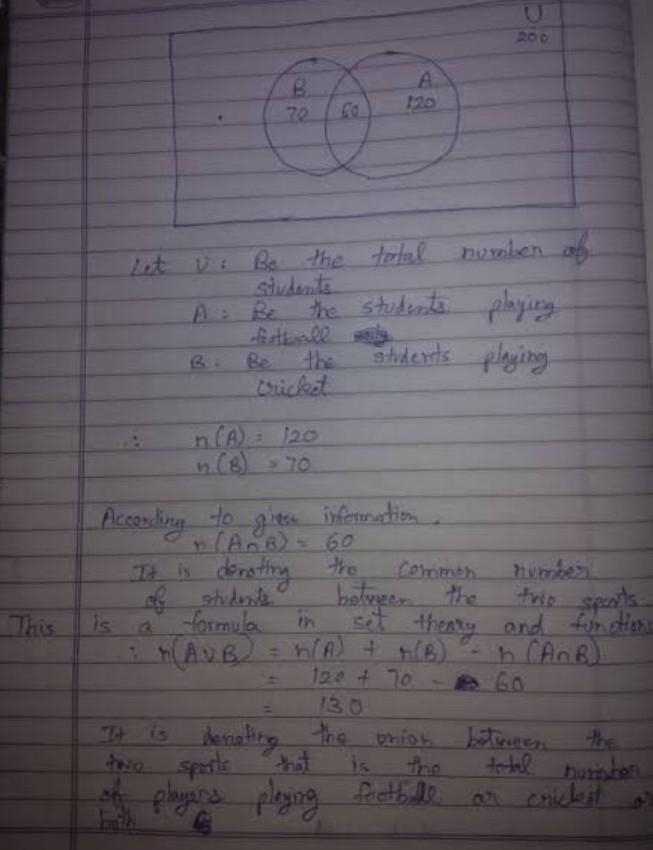 U
200
B A
70 60 120
Let U : Be the total number of
students
A : Be the students playing
football
B : Be the students playing
cricket
∴ n(A) = 120
n(B) = 70
According to given information.
n(A∩B) = 60
It is denoting the common number
of students between the two sports
This is a formula in set theory and functions
∴ n(A∪B) = n(A) + n(B) - n(A∩B)
= 120 + 70 - 60
= 130
It is denoting the union between the
two sports that is the total number
of players playing football or cricket or
both